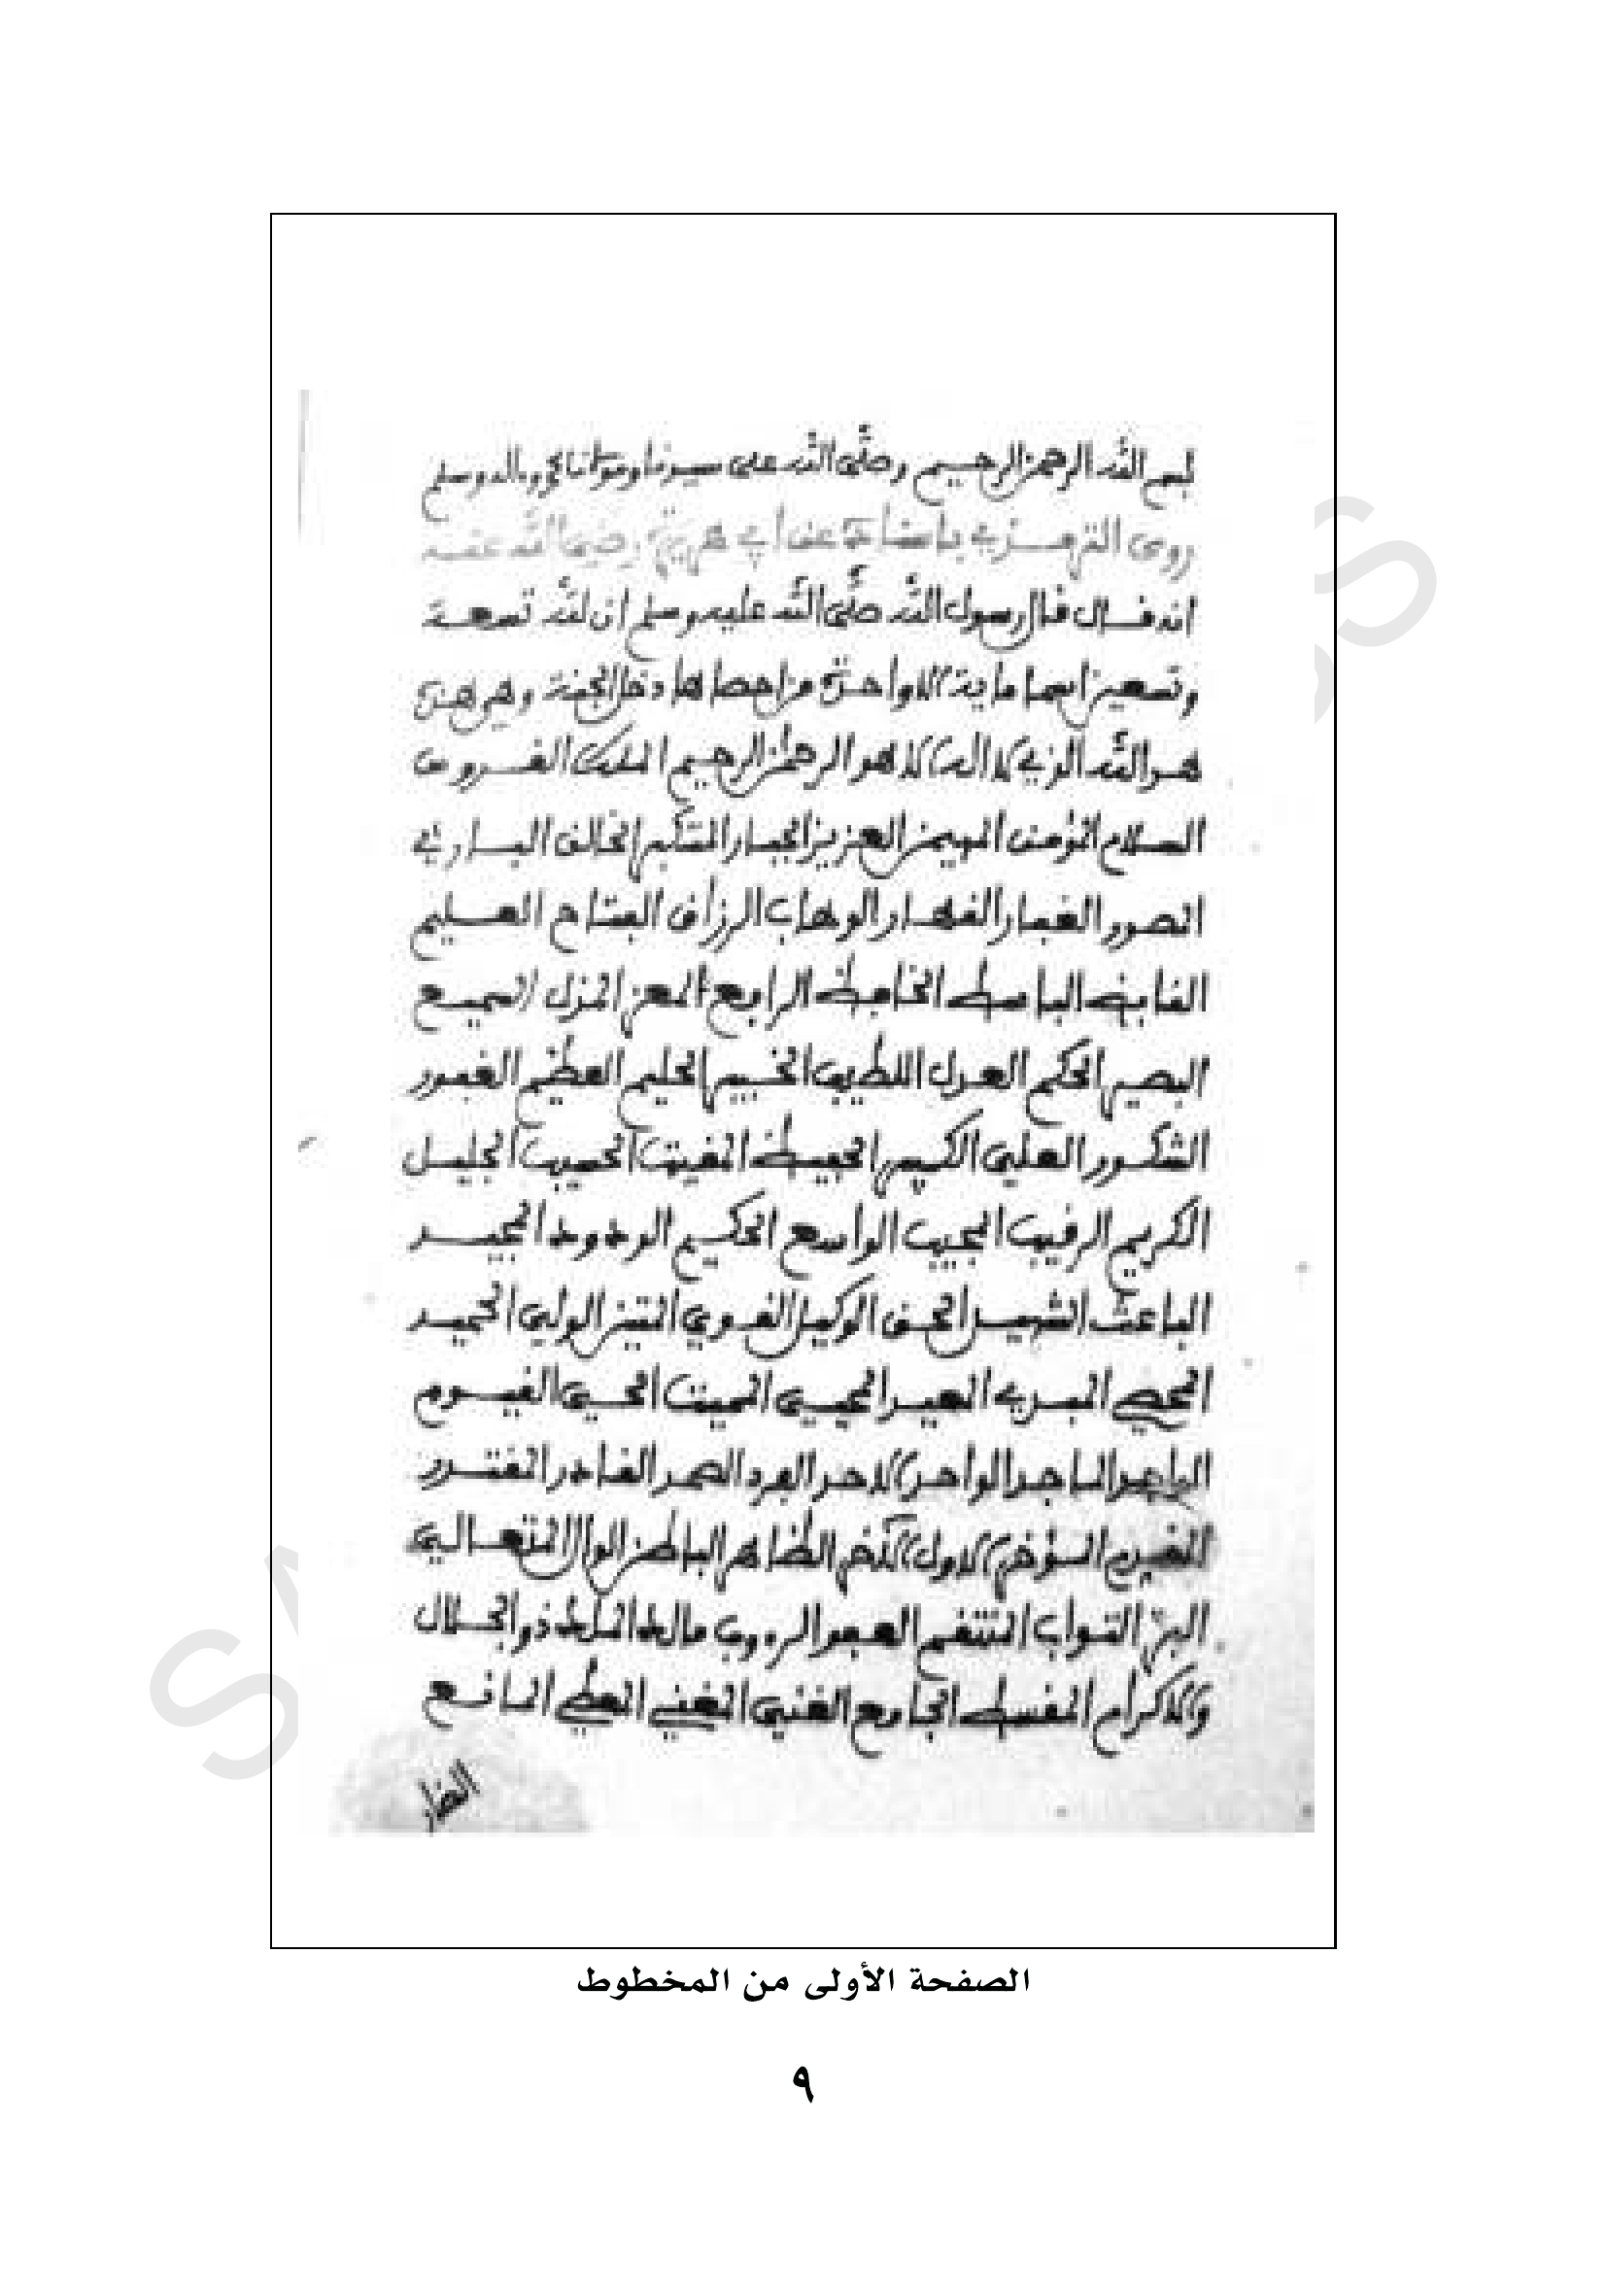 بسم الله الرحمن الرحيم وصلى الله على سيدنا ومولانا محمد وءاله وسلم
روى الترمذي باسناده عن أبي هريرة رضي الله عنه
انه قال قال رسول الله صلى الله عليه وسلم ان لله تسعة
وتسعين اسما ماية الا واحدة من احصاها دخل الجنة وهي هذه
هو الله الذي لا اله الا هو الرحمن الرحيم الملك القدوس
السلام المؤمن المهيمن العزيز الجبار المتكبر الخالق البارئ
المصور الغفار القهار الوهاب الرزاق الفتاح العليم
القابض الباسط الخافظ الرافع المعز المذل السميع
البصير الحكم العدل اللطيف الخبير الحليم العظيم الغفور
الشكور العلي الكبير الحفيظ المقيت الحسيب الجليل
الكريم الرقيب المجيب الواسع الحكيم الودود المجيد
الباعث الشهيد الحق الوكيل القوي المتين الولي الحميد
المحصي المبدئ المعيد المحيي المميت الحي القيوم
الواجد الماجد الواحد الاحد الفرد الصمد القادر المقتدر
المقدم المؤخر الاول الآخر الظاهر الباطن الوال المتعالي
البر التواب المنتقم العفو الرءوف مالك الملك ذو الجلال
والاكرام المقسط الجامع الغني المغني المعطي المانع
الضار
الصفحة الأولى من المخطوط
٩